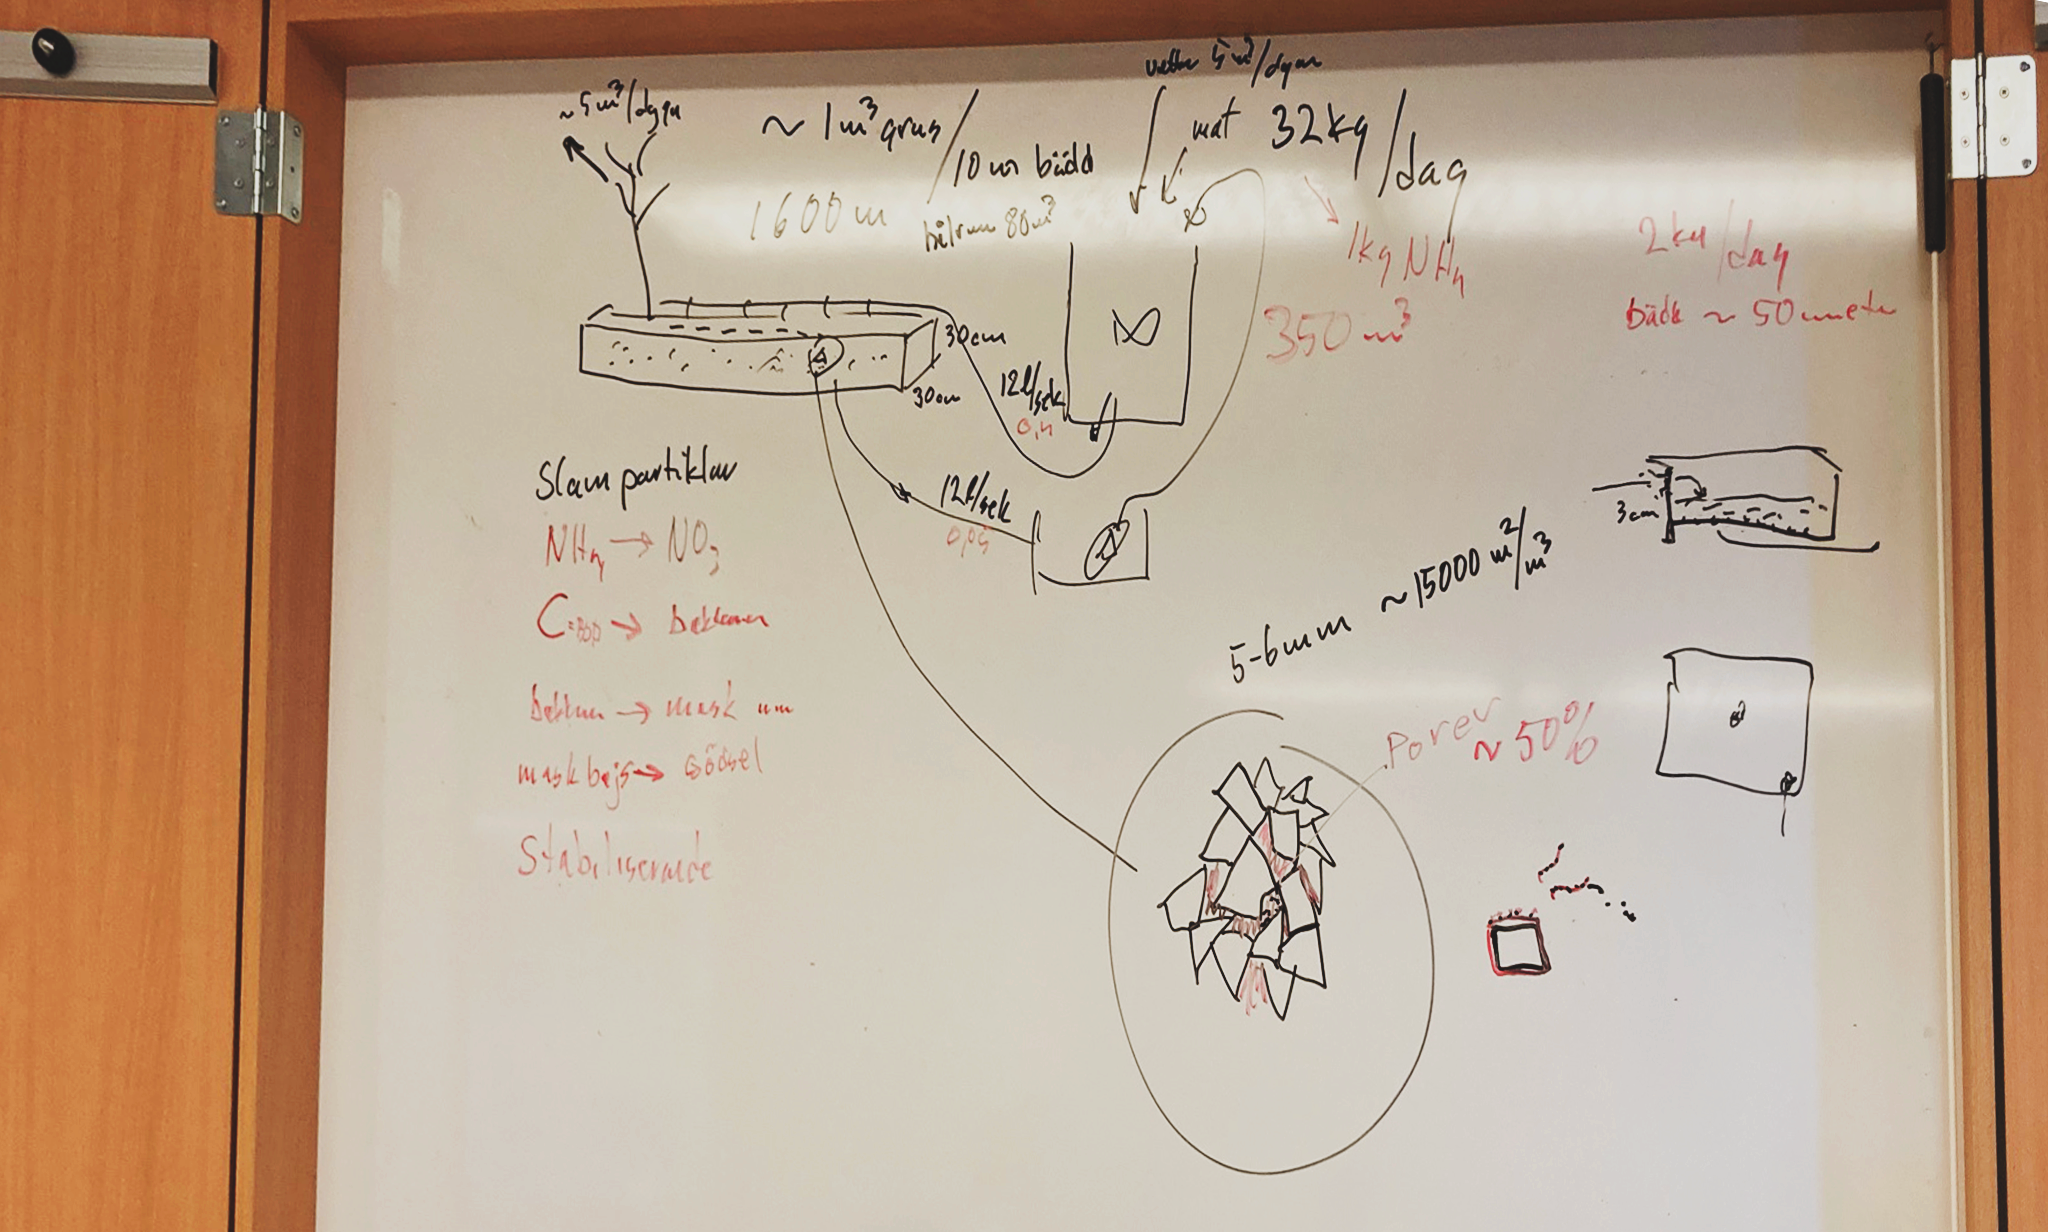 ~5m³/dygn
~ 1m³ grus / 10m bädd
1600m
80m³
vatten 5m³/dygn
mat 32kg/dag
1kg NH₄
350m³
2kg/dag
bädd ~ 50 meter
30cm
30cm
12l/sek
0,4
12l/sek
0,05
3cm
Slam partiklar
NH₄ → NO₃
C=BOD →
→ mask
mask bajs → gödsel
Stabiliserande
5-6mm ~15000 m²/m³
Porer
~ 50%